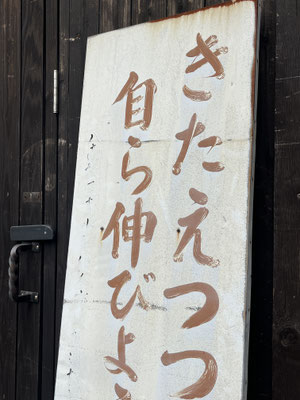 きたえつつ
自ら伸びよ